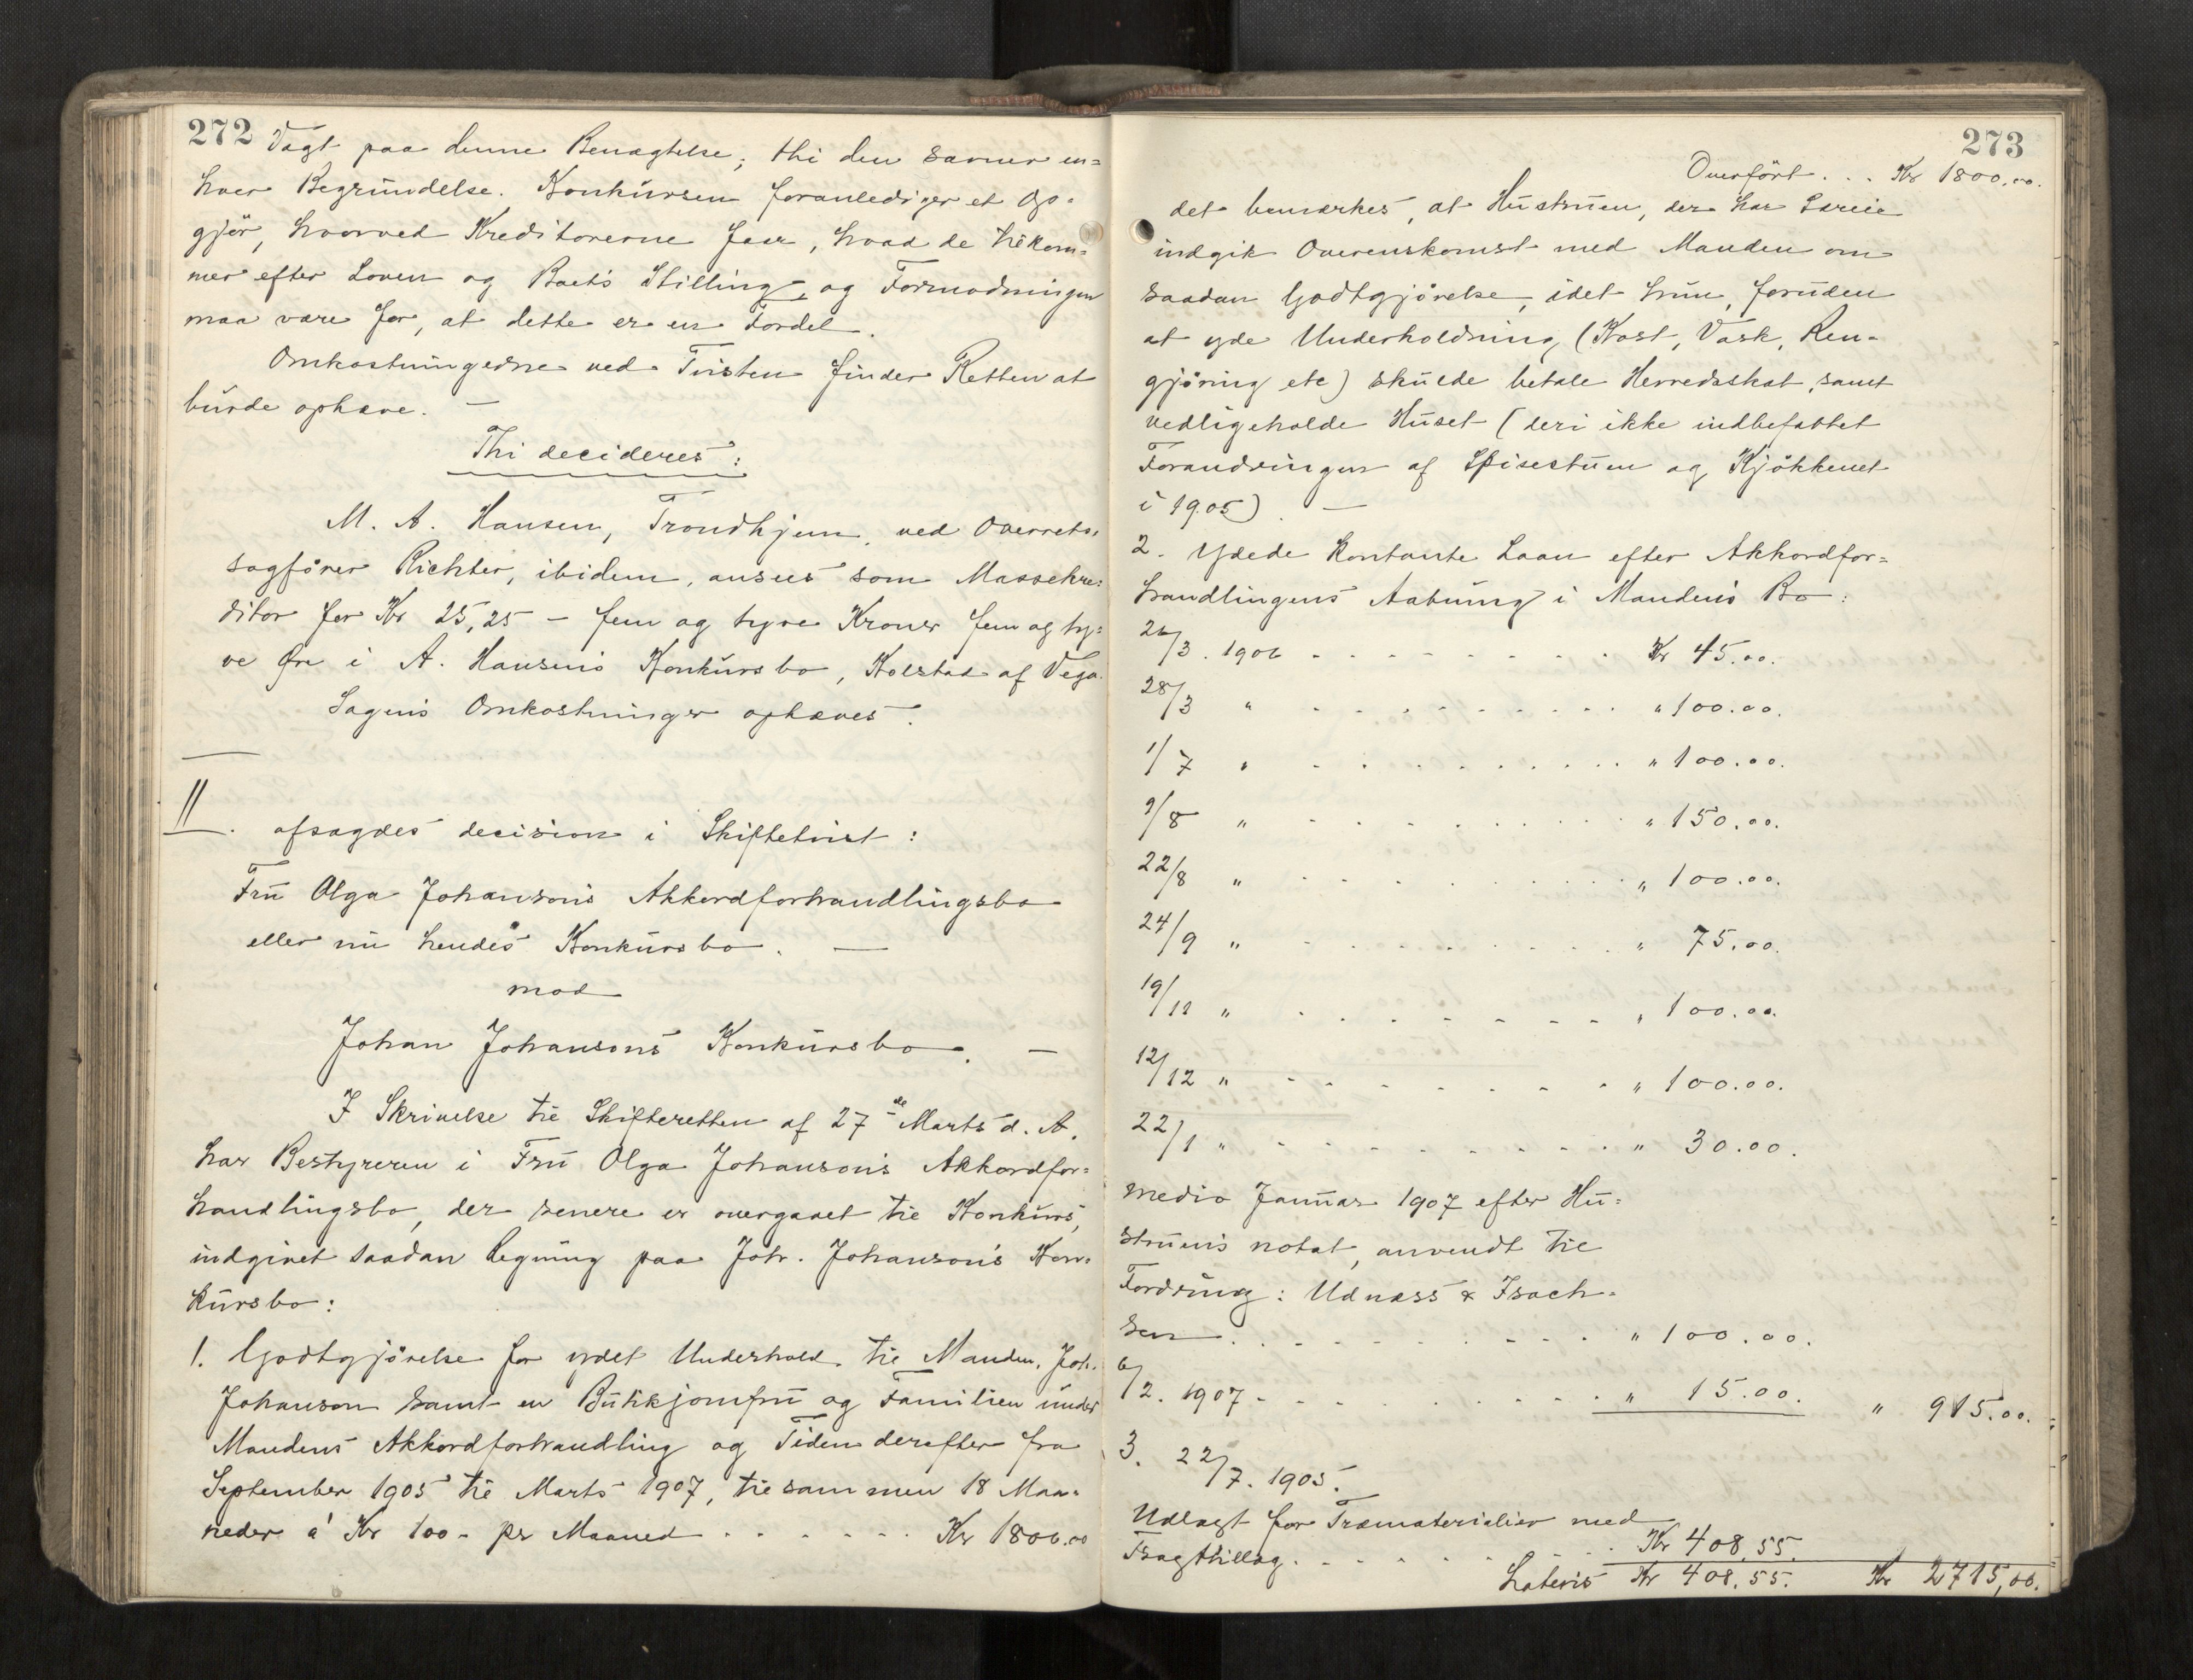 272 Vægt paa denne Benægtelse; thi den savner en=
hver Begrundelse. Konkursen foranlediger et Op=
gjør, hvorved Kreditorerne faar, hvad de tilkom=
mer efter Loven og Boets Stilling, og Formodningen
maa være for, at dette er en Fordel.
Omkostningerne ved Tvisten finder Retten at
burde ophæve. —
Thi decideres:
M. A. Hansen, Trondhjem, ved Overrets=
sagfører Richter, ibidem, ansees som Massekre=
ditor for Kr 25,25 — fem og tyve Kroner fem og ty=
ve Øre i A. Hansens Konkursbo, Kolstad af Vega.
Sagens Omkostninger ophæves.
II. afsagdes decision i Skiftetvist:
Fru Olga Johansons Akkordforhandlingsbo
eller nu hendes Konkursbo. —
mod
Johan Johansons Konkursbo. —
I Skrivelse til Skifteretten af 27de Marts d. A.
har Bestyreren i Fru Olga Johansons Akkordfor=
handlingsbo, der senere er overgaaet til Konkurs,
indgivet saadan Regning paa Joh. Johansons Kon=
kursbo:
1. Godtgjørelse for ydet Underhold til Manden, Joh.
Johanson samt en Butikjomfru og Familien under
Mandens Akkordforhandling og Tiden derefter fra
September 1905 til Marts 1907, tilsammen 18 Maa=
neder á Kr 100 - pr Maaned . . . . . . Kr 1800.00
273
Overført . . . Kr 1800.00.
det bemærkes, at Hustruen, der har Særeie
indgik Overenskomst med Manden om
saadan Godtgjørelse, idet hun, foruden
at yde Underholdning (Kost, Vask, Ren=
gjøring etc) skulde betale Herredsskat, samt
vedligeholde Huset (deri ikke indbefattet
Forandringer af Spisestuen og Kjøkkenet
i 1905). —
2. Ydede kontante Laan efter Akkordfor=
handlingens Aabning i Mandens Bo:
26/3. 1906 . . . . . . . . . Kr 45.00.
28/3 " . . . . . . . . . " 100.00.
1/7 " . . . . . . . . . " 100.00.
9/8 " . . . . . . . . . " 150.00.
22/8 " . . . . . . . . . " 100.00.
24/9 " . . . . . . . . . " 75.00.
19/11 " . . . . . . . . . " 100.00.
12/12 " . . . . . . . . . " 100.00.
22/1 " . . . . . . . . . " 30.00.
medio Januar 1907 efter Hu=
struens notat, anvendt til
Fordring: Udnæss & Isach=
sen . . . . . . . . . " 100.00.
6/2. 1907 . . . . . . . . . " 15.00. " 915.00.
3. 22/7. 1905.
Udlagt for Træmaterialier med
Fragttillæg. . . . . . . . . Kr 408.55.
Lateris Kr 408.55. Kr 2715,00.